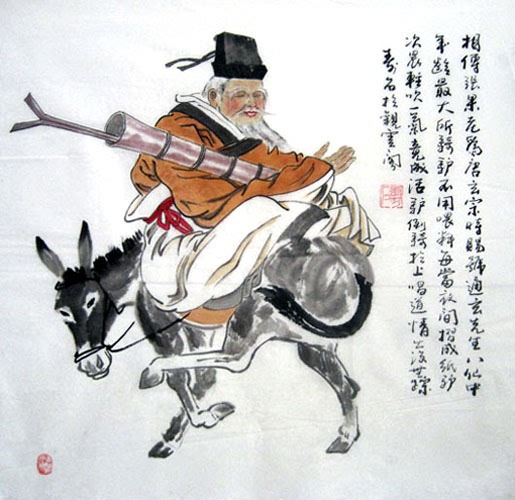 相傳張果老為唐玄宗時賜號通玄先生八仙中
年齡最大所騎驢不用喂料每當夜間摺成紙驢
次晨輕吹一氣竟成活驢倒騎於上唱道情
壽石於觀雲閣